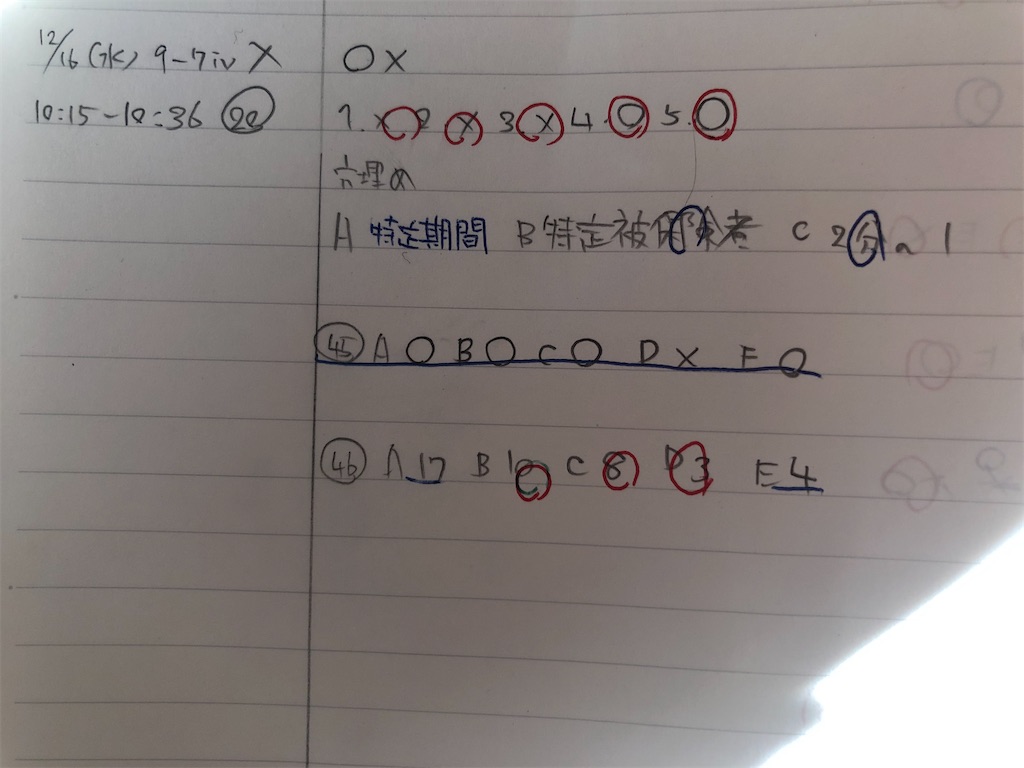 12/16 (GK) 9-7iv X
10:15-10:36 20
○ X
1. X 2 X 3 X 4. ○ 5. ○
穴埋め
A 特定期間 B 特定被保険者 C 2分の1
45 A ○ B ○ C ○ D X E ○
46 A 17 B C 8 D 3 E 4